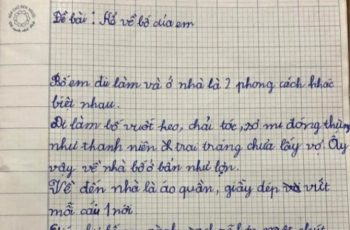 Đề bài: Kể về bố của em
Bố em đi làm và ở nhà là 2 phong cách khác
biệt nhau.
Đi làm bố vuốt keo, chải tóc, sơ mi đóng thùng
như thanh niên & trai tráng chưa lấy vợ. Ấy
vậy về nhà bố ở bẩn như lợn.
Về đến nhà là áo quần, giầy dép vứt
mỗi cái 1 nơi